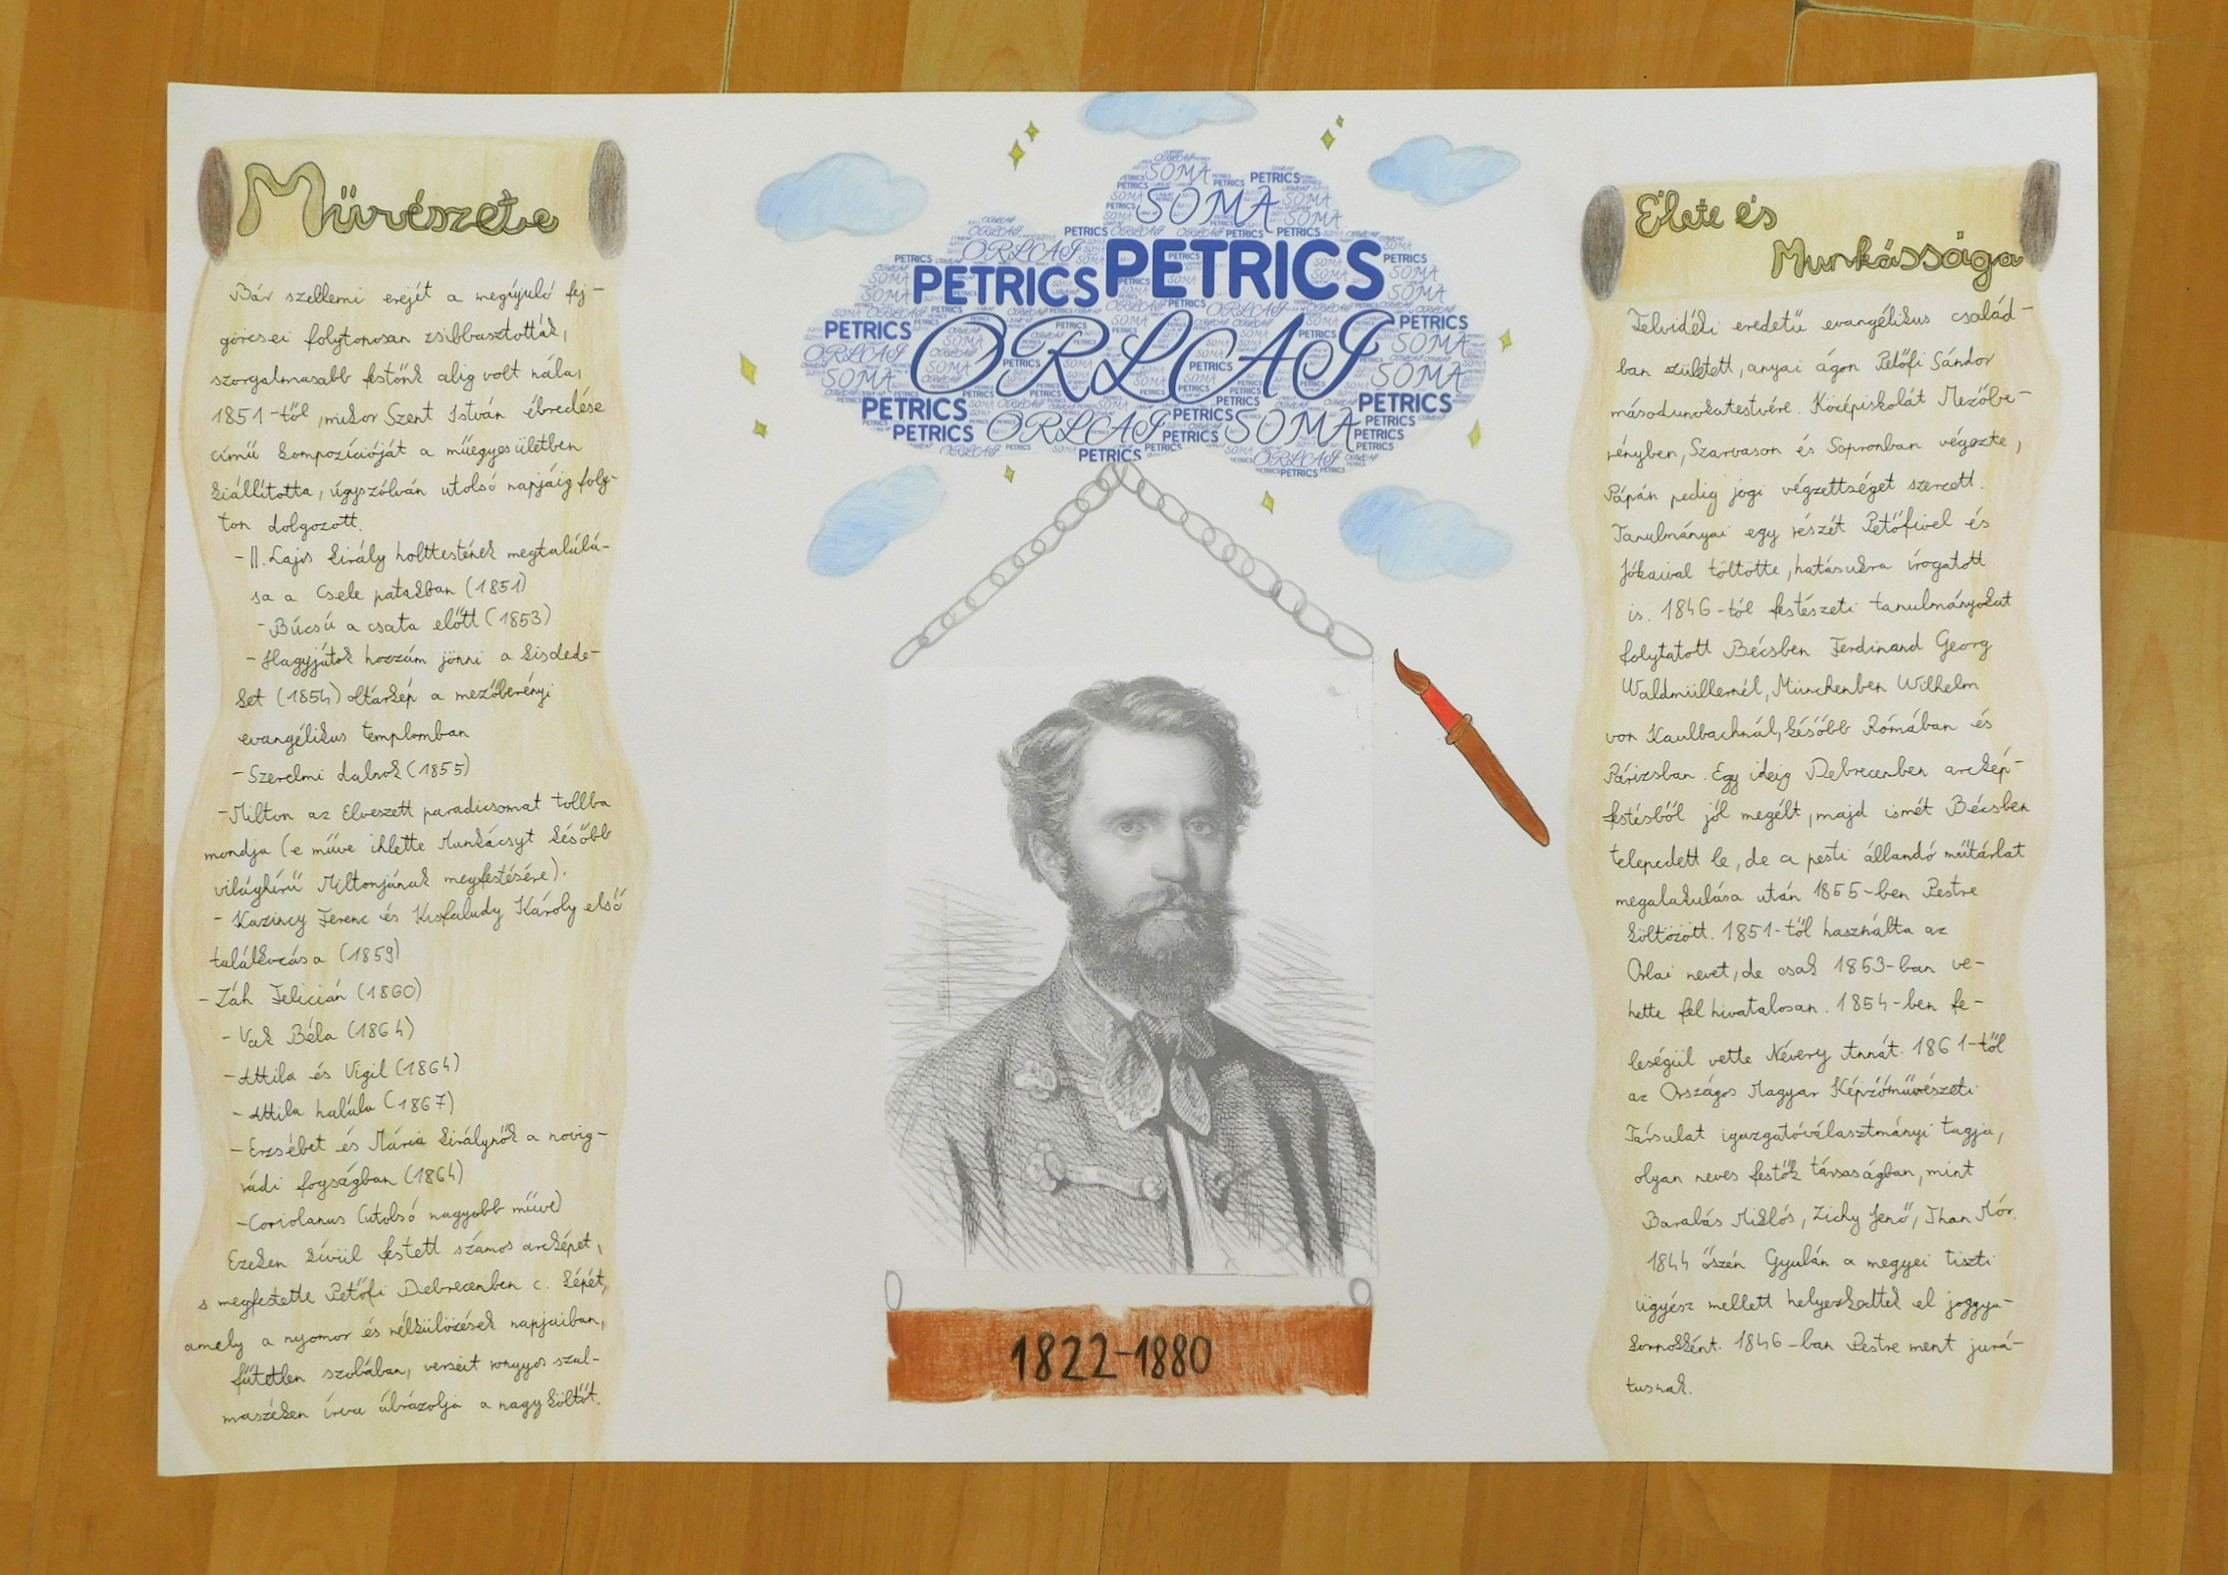 Művészete
Bár szellemi erejét a megújuló fej-
görcsei folytonosan zsibbasztották,
szorgalmasabb festőnk alig volt nála,
1851-től, mikor Szent István ébredése
című kompozícióját a műegyesületben
kiállította, úgyszólván utolsó napjáig foly-
ton dolgozott.
-II. Lajos király holttestének megtalálá-
sa a Csele patakban (1851)
-Búcsú a csata előtt (1853)
-Hagyjátok hozzám jönni a kisdede-
ket (1854) oltárkép a mezőberényi
evangélikus templomban
-Szerelmi dalnok (1855)
-Milton az Elveszett paradicsomat tollba
mondja (e műve ihlette Munkácsyt később
világhírű Miltonjának megfestésére).
- Kazinczy Ferenc és Kisfaludy Károly első
találkozása (1859)
- Zách Felicián (1860)
- Vak Béla (1864)
-Attila és Vigil (1864)
-Attila halála (1867)
-Erzsébet és Mária királynők a novig-
rádi fogságban (1864)
-Coriolanus (utolsó nagyobb műve)
Ezeken kívül festett számos arcképet,
s megfestette Petőfi Debrecenben c. képét,
amely a nyomor és nélkülözések napjaiban,
fűtetlen szobában, verseit rongyos szal-
maszéken írva ábrázolja a nagy költőt.
SOMA
PETRICS PETRICS
ORLCAJ
PETRICS ORLCAJ PETRICS SOMA PETRICS
PETRICS
1822-1880
Élete és
Munkássága
Felvidéki eredetű evangélikus család-
ban született, anyai ágon Petőfi Sándor
másodunokatestvére. Középiskolát Mezőbe-
rényben, Szarvason és Sopronban végezte,
Pápán pedig jogi végzettséget szerzett.
Tanulmányai egy részét Petőfivel és
Jókaival töltötte, hatásukra írogatott
is. 1846-tól festészeti tanulmányokat
folytatott Bécsben Ferdinand Georg
Waldmüllernél, Münchenben Wilhelm
von Kaulbachnál, később Rómában és
Párizsban. Egy ideig Debrecenben arckép-
festésből jól megélt, majd ismét Bécsben
telepedett le, de a pesti állandó műtárlat
megalakulása után 1855-ben Pestre
költözött. 1851-től használta az
Orlai nevet, de csak 1853-ban ve-
hette fel hivatalosan. 1854-ben fe-
leségül vette Névery Annát. 1861-től
az Országos Magyar Képzőművészeti
Társulat igazgatóválasztmányi tagja,
olyan neves festők társaságban, mint
Barabás Miklós, Zichy Jenő, Than Mór.
1844 őszén Gyulán a megyei tiszti
ügyész mellett helyezkedtek el joggya-
kornokként. 1846-ban Pestre ment jurá-
tusnak.